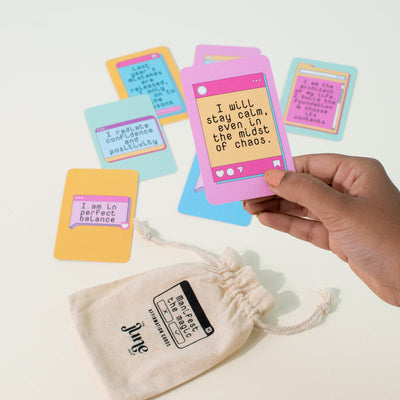 Last
year's
mistakes are
released,
I only
to the
lessons
I am the
architect
of my life,
I build the
foundation
& choose
its
contents
I will
stay calm,
even in
the midst
of chaos.
I radiate
confidence
and
positivity
I am in
perfect
balance
Manifest
the magic
AFFIRMATION CARDS
THE
june